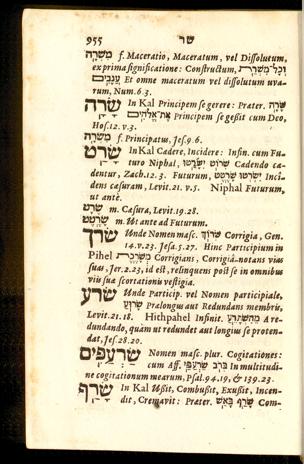 955 שר
מִשְׁרָה f. Maceratio, Maceratum, vel Dissolutum,
ex prima significatione: Constructum, וְכָל־מִשְׁרַת
עֲנָבִים Et omne maceratum vel dissolutum uva-
rum, Num. 6.3.
שָׂרָה In Kal Principem se gerere: Præter. שָׂרָה
אֶת־אֱלֹהִים Principem se gessit cum Deo,
Hos. 12. v. 3.
מִשְׂרָה f. Principatus, Jes. 9. 6.
שָׂרַט In Kal Cadere, Incidere: Infin. cum Fu-
turo Niphal, שָׂרוֹט יִשָּׂרֵטוּ Cadendo cæ-
dentur, Zach. 12. 3. Futurum, יִשְׂרְטוּ שָׂרָטֶת Inci-
dens cæsuram, Levit. 21. v. 5. Niphal Futurum,
ut ante.
שֶׂרֶט m. Cæsura, Levit. 19. 28.
שָׂרֶטֶת m. Ut ante ad Futurum.
שׂרךְ Unde Nomen masc. שְׂרוֹךְ Corrigia, Gen.
14. v. 23. Jesa. 5. 27. Hinc Participium in
Pihel מְשָׂרֶכֶת Corrigians, Corrigiâ notans vias
suas, Jer. 2, 23, id est, relinquens post se in omnibus
viis sua scortationis vestigia.
שׂרע Unde Particip. vel Nomen participiale,
שָׂרוּעַ Prælongus aut Redundans membris,
Levit. 21. 18. Hithpahel Infinit. מֵהִשְׂתָּרֵעַ A re-
dundando, quàm ut redundet aut longius se proten-
dat, Jes. 28. 20.
שַׂרְעַפִּים Nomen masc. plur. Cogitationes:
cum Aff. בְּרֹב שַׂרְעַפַּי In multitudi-
ne cogitationum mearum, Psal. 94. 19, & 139. 23.
שָׂרַף In Kal Ussit, Combussit, Exussit, Incen-
dit, Cremavit: Præter. שָׂרַף בָּאֵשׁ Com-